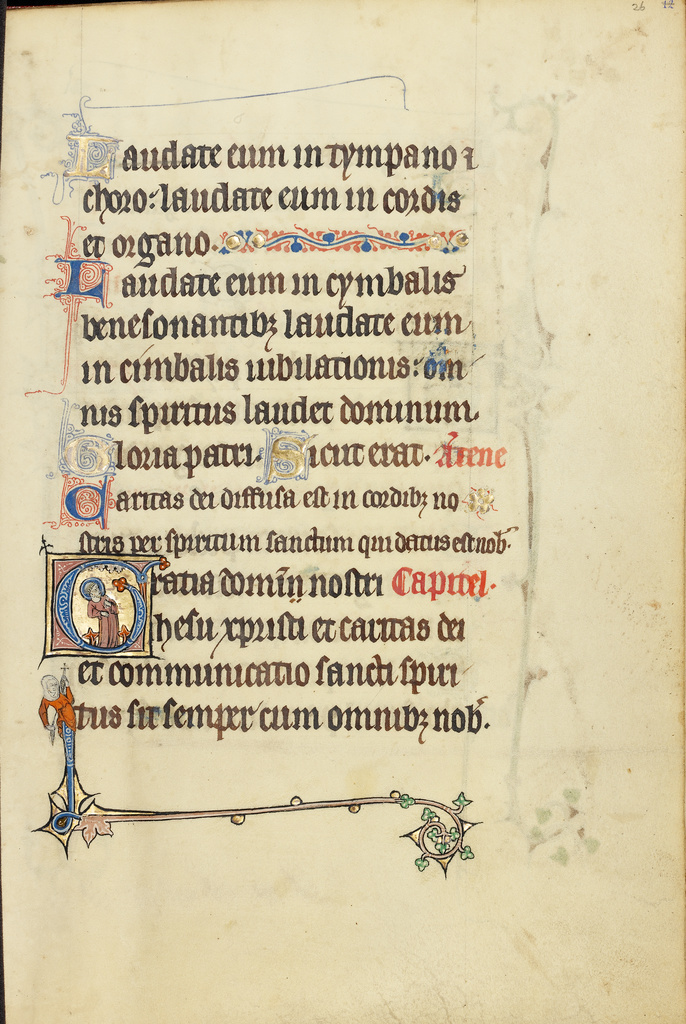 26 12
Laudate eum in tympano ⁊
choro: laudate eum in cordis
et organo.
Laudate eum in cymbalis
benesonantibꝫ laudate eum
in cimbalis iubilationis: om
nis spiritus laudet dominum.
Gloria patri. Sicut erat. Atene
Caritas dei diffusa est in cordibꝫ no
stris per spiritum sanctum qui datus est nob̄.
Gratia domīnj nostri Capitel.
ihesu xpristi et caritas dei
et communicatio sancti spiri
tus sit semper cum omnibꝫ nob̄.